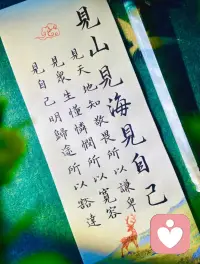 見山見海見自己
見天地知敬畏所以謙卑
見眾生懂憐憫所以寬容
見自己明歸途所以豁達